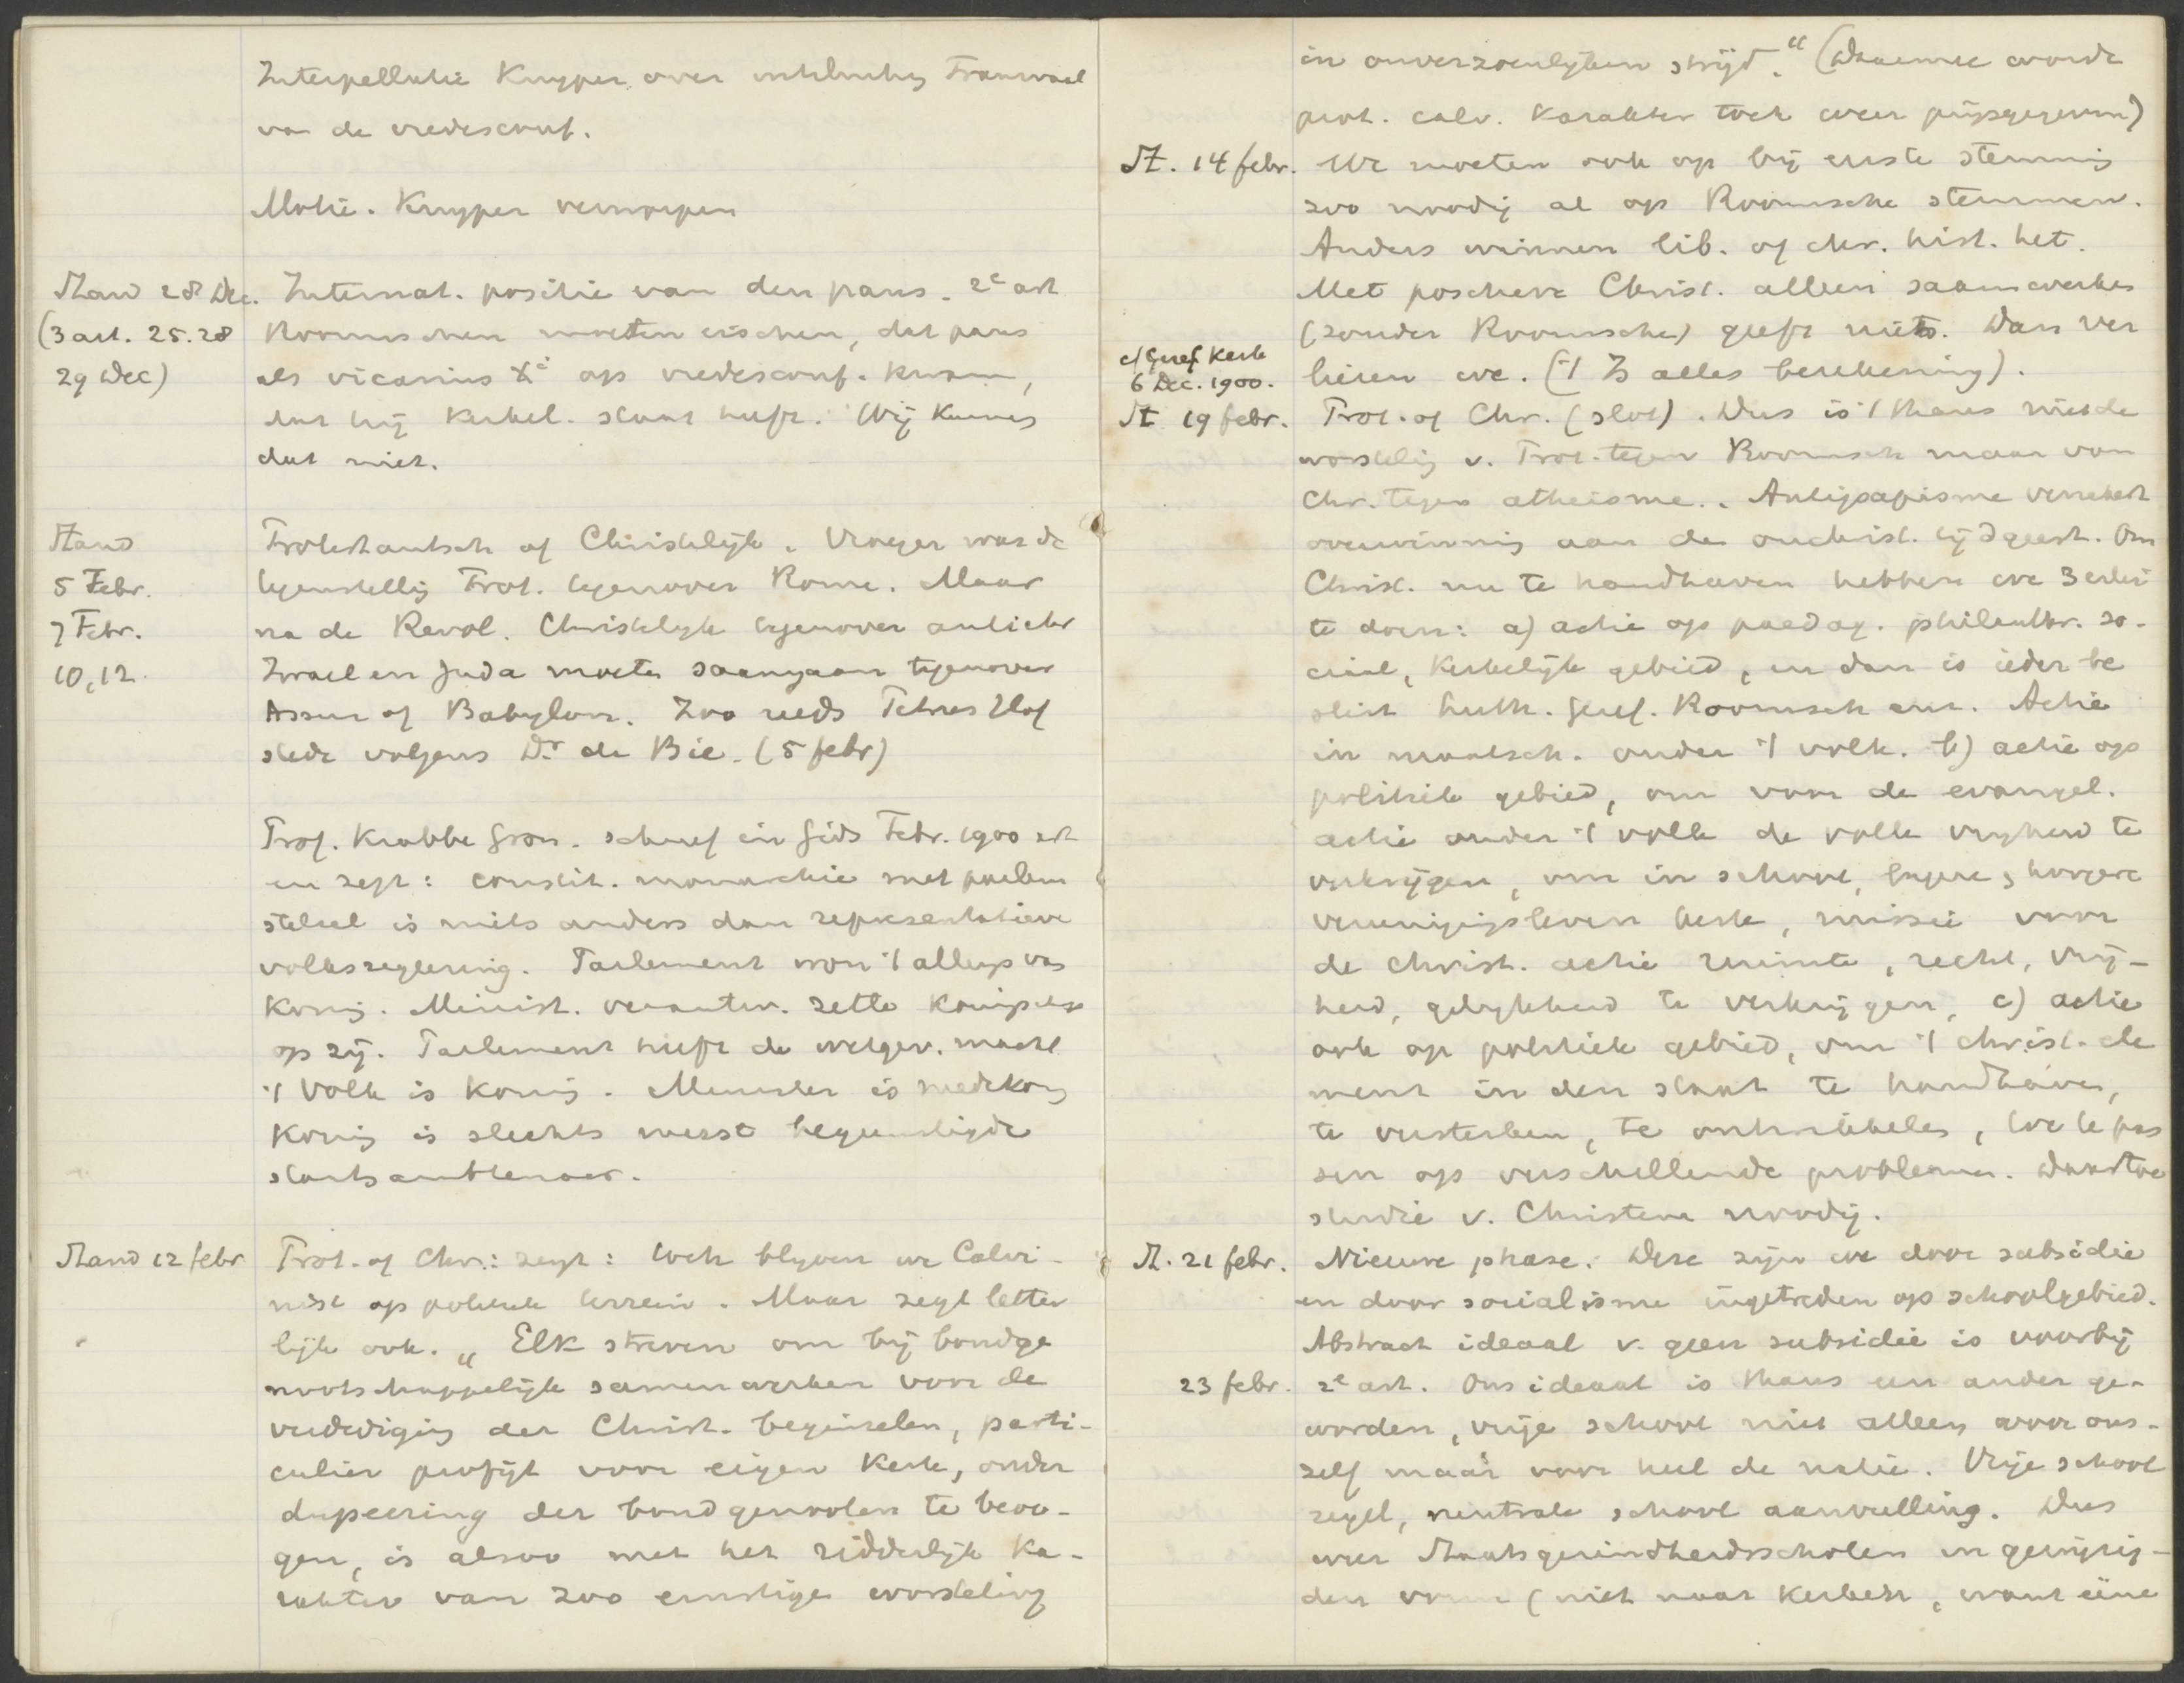 Interpellatie Kuyper over uitsluiting Transvaal
van de vredesconf.
Motie. Kuyper verworpen
Stand 28 Dec. Internat. positie van den paus. 2e art
(3 art. 25.28 Roomschen moeten eischen, dat paus
29 Dec) als vicarius Xi op vredesconf. kwam,
dat hij Kerkel. staat heeft. Wij kunnen
dat niet.
Stand Protestantsch of Christelijk. Vroeger was de
5 Febr. tegenstellig Prot. tegenover Rome. Maar
7 Febr. na de Revol. Christelyk tegenover antichr
10,12. Israel en Juda moeten saamgaan tegenover
Assur of Babylon. Zoo reeds Petrus Hof
stede volgens Dr de Bie. (5 febr)
Prof. Krabbe Gron. schreef in Gids Febr. 1900 art
en zegt: constit. monarchie met parlem
stelsel is niets anders dan representatieve
volksregeering. Parlement won 't allengs van
Koning. Minist. verantw. zette Koning
op zij. Parlement heeft de wetgev. macht
't Volk is Koning. Minister is medekon
Koning is slechts meest begunstigde
staatsambtenaar.
Stand 12 febr Prot. of Chr.: zegt: toch blyven we Calvi-
nist op politiek terrein. Maar zegt letter
lijk ook. „Elk streven om bij bondge
nootschappelijk samenwerken voor de
verdediging der Christ. beginselen, parti-
culier profijt voor eigen Kerk, onder
dupeering der bondgenooten te beoo-
gen, is alsoo met het ridderlijk Ka-
rakter van zoo ernstige worsteling
in onverzoenlijken strijd." (Daarmee wordt
prot. calv. Karakter toch weer prijsgegeven)
St. 14 febr. We moeten ook op bij eerste stemming
zoo noodig al op Roomsche stemmen.
Anders winnen lib. of chr. hist. het.
Met positieve Christ. alleen saamwerken
(zonder Roomsche) geeft niets. Dan ver
cf Geref Kerk
6 Dec. 1900. liezen we. ('t Is alles berekening).
St 19 febr. Prot. of Chr. (slot). Dus is 't thans niet de
worstelig v. Prot. tegen Roomsch maar van
Chr. tegen atheisme.. Antipapisme verzekert
overwinnig aan den onchrist. tijdgeest. Om
Christ. nu te handhaven hebben we 3 erlei
te doen: a) actie op paedag. philanthr. so-
ciaal, Kerkelijk gebied, en dan is ieder be
slist Luth. Geref. Roomsch enz. Actie
in maatsch. onder 't volk. b) actie op
politiek gebied, om voor de evangel.
actie onder 't volk de volle vryheid te
verkrijgen, om in school, lagere, hoogere
vereenigingsleven Kerk, missie voor
de christ. actie ruimte, recht, vrij-
heid, gelykheid te verkrijgen, c) actie
ook op politiek gebied, om 't christ. ele
ment in den staat te handhaven,
te versterken, te ontwikkelen, toe te pas
sen op verschillende problemen. Daartoe
studie v. Christenen noodig.
St. 21 febr. Nieuwe phase. Deze zijn we door subsidie
en door socialisme ingetreden op schoolgebied.
Abstract ideaal v. geen subsidie is voorbij
23 febr. 2e art. Ons ideaal is thans een ander ge-
worden, vrije school niet alleen voor ons-
zelf maar voor heel de natie. Vrije school
regel, neutrale school aanvulling. Dus
weer Staatsgezindheidsscholen in gewijzig-
den vorm (niet naar Kerken, want eene